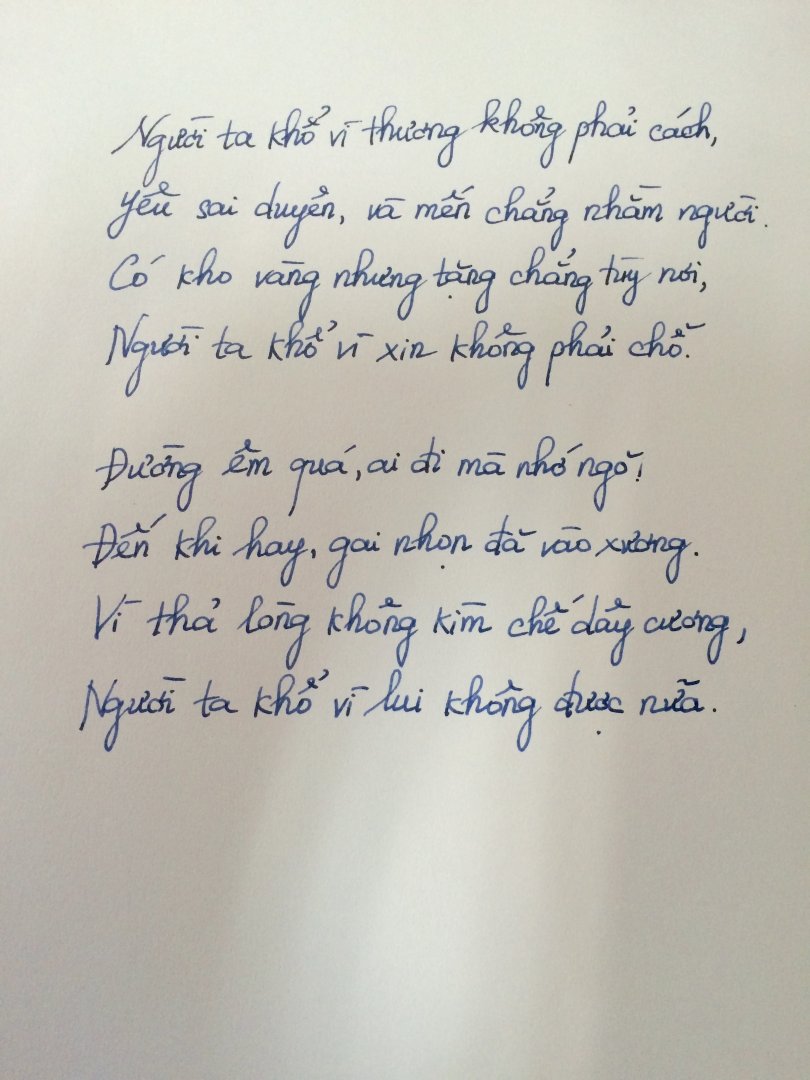 Người ta khổ vì thương không phải cách,
Yêu sai duyên, và mến chẳng nhằm người.
Có kho vàng nhưng tặng chẳng tùy nơi,
Người ta khổ vì xin không phải chỗ.
Đường êm quá, ai đi mà nhớ ngó!
Đến khi hay, gai nhọn đã vào xương.
Vì thả lòng không kìm chế dây cương,
Người ta khổ vì lui không được nữa.